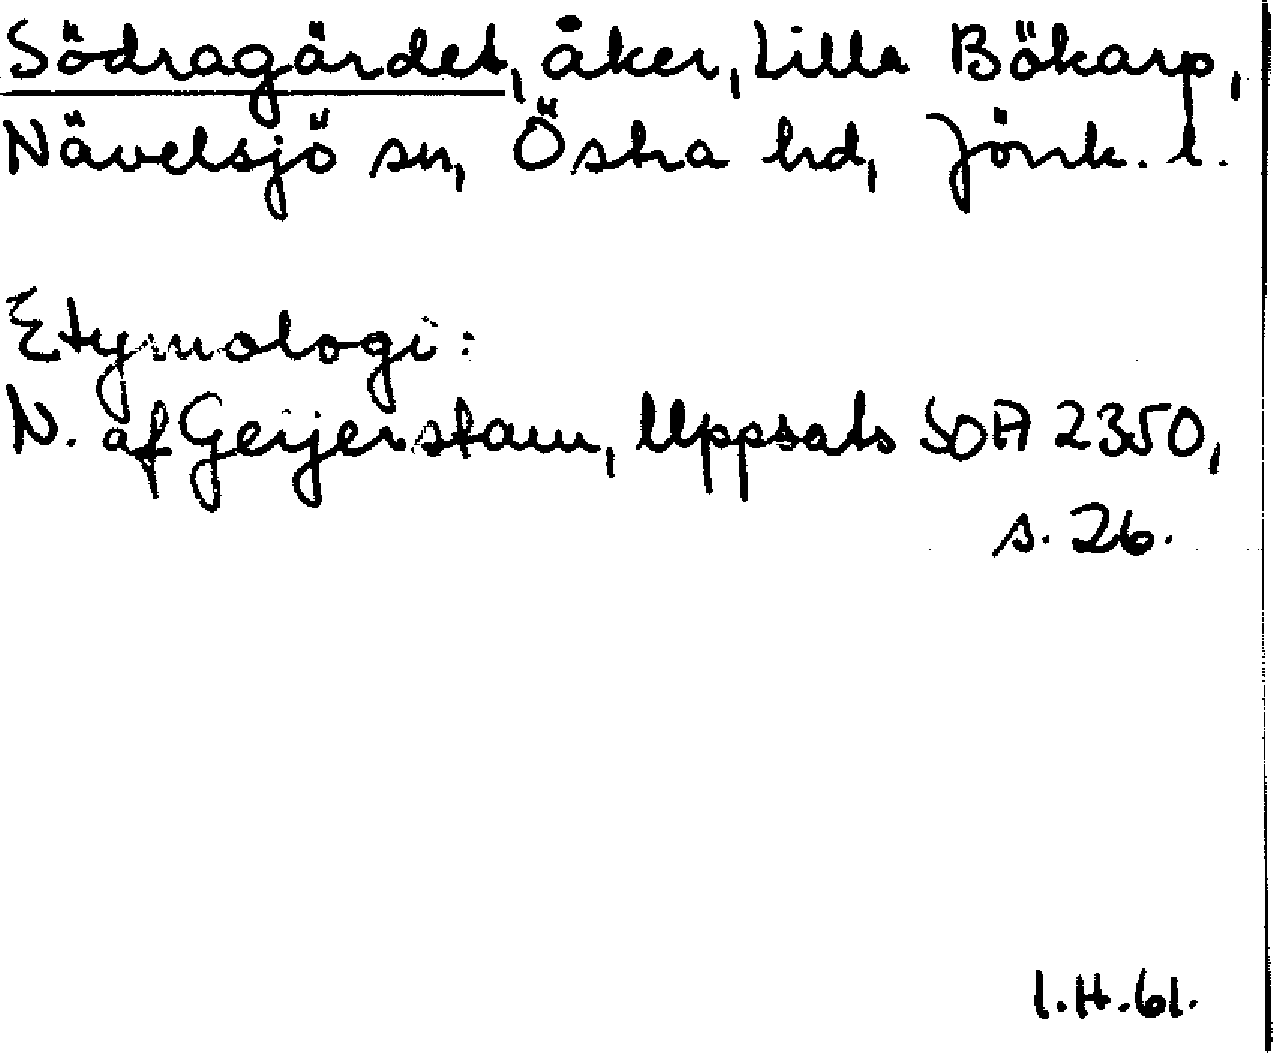 Södragärdet, åker, Lilla Bökarp,
Nävelsjö sn, Östra hd, Jönk. l.
Etymologi:
N. af Geijerstam, Uppsats SOA 2350,
s. 26.
I.H.61.